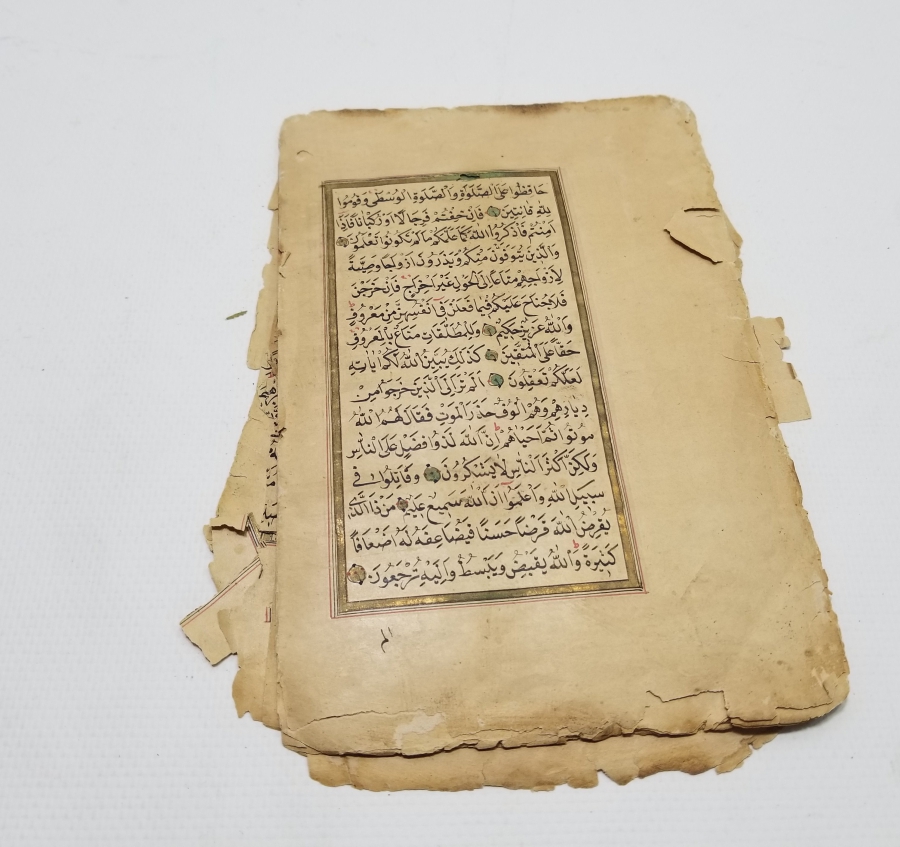 حَافِظُوا عَلَى الصَّلَوةِ وَالصَّلَوةِ الْوُسْطَى وَقُومُوا
لِلّٰهِ قَانِتِينَ فَاِنْ خِفْتُمْ فَرِجَالًا اَوْ رُكْبَانًا فَاِذَا
اَمِنْتُمْ فَاذْكُرُوا اللّٰهَ كَمَا عَلَّمَكُمْ مَا لَمْ تَكُونُوا تَعْلَمُونَ
وَالَّذِينَ يُتَوَفَّوْنَ مِنْكُمْ وَيَذَرُونَ اَزْوَاجًا وَصِيَّةً
لِاَزْوَاجِهِمْ مَتَاعًا اِلَى الْحَوْلِ غَيْرَ اِخْرَاجٍ فَاِنْ خَرَجْنَ
فَلَا جُنَاحَ عَلَيْكُمْ فِيمَا فَعَلْنَ فِى اَنْفُسِهِنَّ مِنْ مَعْرُوفٍ
وَاللّٰهُ عَزِيزٌ حَكِيمٌ وَلِلْمُطَلَّقَاتِ مَتَاعٌ بِالْمَعْرُوفِ
حَقًّا عَلَى الْمُتَّقِينَ كَذَلِكَ يُبَيِّنُ اللّٰهُ لَكُمْ اٰيَاتِهِ
لَعَلَّكُمْ تَعْقِلُونَ اَلَمْ تَرَ اِلَى الَّذِينَ خَرَجُوا مِنْ
دِيَارِهِمْ وَهُمْ اُلُوفٌ حَذَرَ الْمَوْتِ فَقَالَ لَهُمُ اللّٰهُ
مُوتُوا ثُمَّ اَحْيَاهُمْ اِنَّ اللّٰهَ لَذُو فَضْلٍ عَلَى النَّاسِ
وَلَكِنَّ اَكْثَرَ النَّاسِ لَا يَشْكُرُونَ وَقَاتِلُوا فِى
سَبِيلِ اللّٰهِ وَاعْلَمُوا اَنَّ اللّٰهَ سَمِيعٌ عَلِيمٌ مَنْ ذَا الَّذِى
يُقْرِضُ اللّٰهَ قَرْضًا حَسَنًا فَيُضَاعِفَهُ لَهُ اَضْعَافًا
كَثِيرَةً وَاللّٰهُ يَقْبِضُ وَيَبْسُطُ وَاِلَيْهِ تُرْجَعُونَ
الم